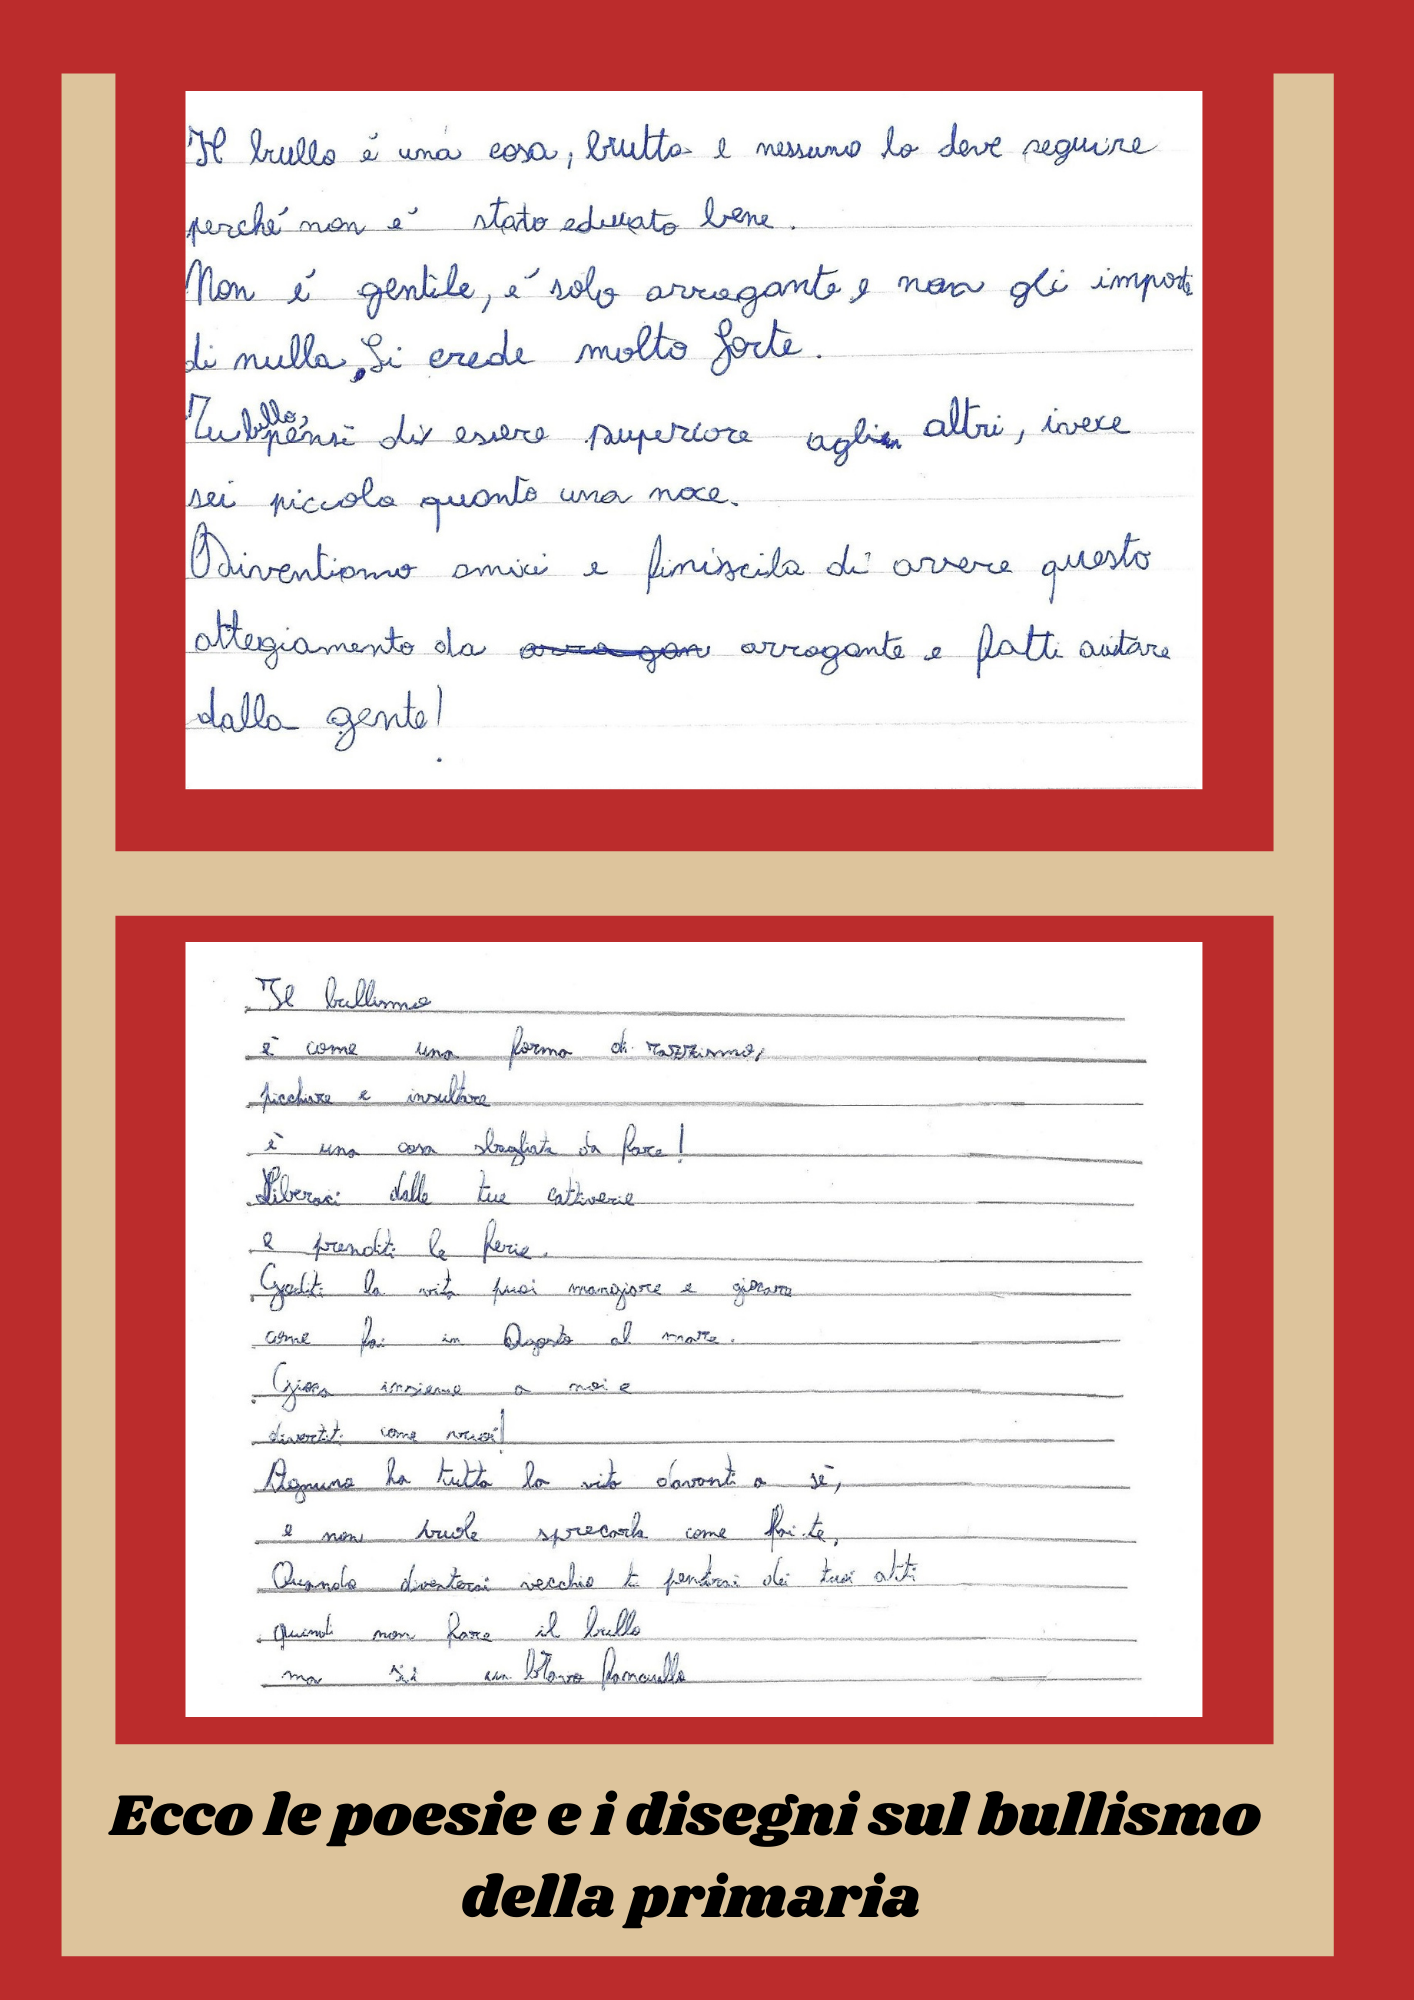 Il bullo é una cosa, brutta e nessuno lo deve seguire
perché non é stato educato bene.
Non é gentile, é solo arrogante e non gli importa
di nulla, Si crede molto forte.
Tu bullo, pensi di essere superiore agli altri, invece
sei piccolo quanto una noce.
Diventiamo amici e finiscila di avere questo
attegiamento da arrogante e fatti aiutare
dalla gente!
Il bullismo
è come una forma di razzismo,
picchiare e insultare
è una cosa sbagliata da fare!
Liberaci dalle tue cattiverie
e prenditi le ferie.
Goditi la vita puoi mangiare e giocare
come fai in Agosto al mare.
Gioca insieme a noi e
divertiti come vuoi!
Ognuno ha tutta la vita davanti a sè,
e non vuole sprecarla come fai te,
Quando diventerai vecchio ti pentirai dei tuoi atti
quindi non fare il bullo
ma sii un bravo fanciullo
Ecco le poesie e i disegni sul bullismo
della primaria